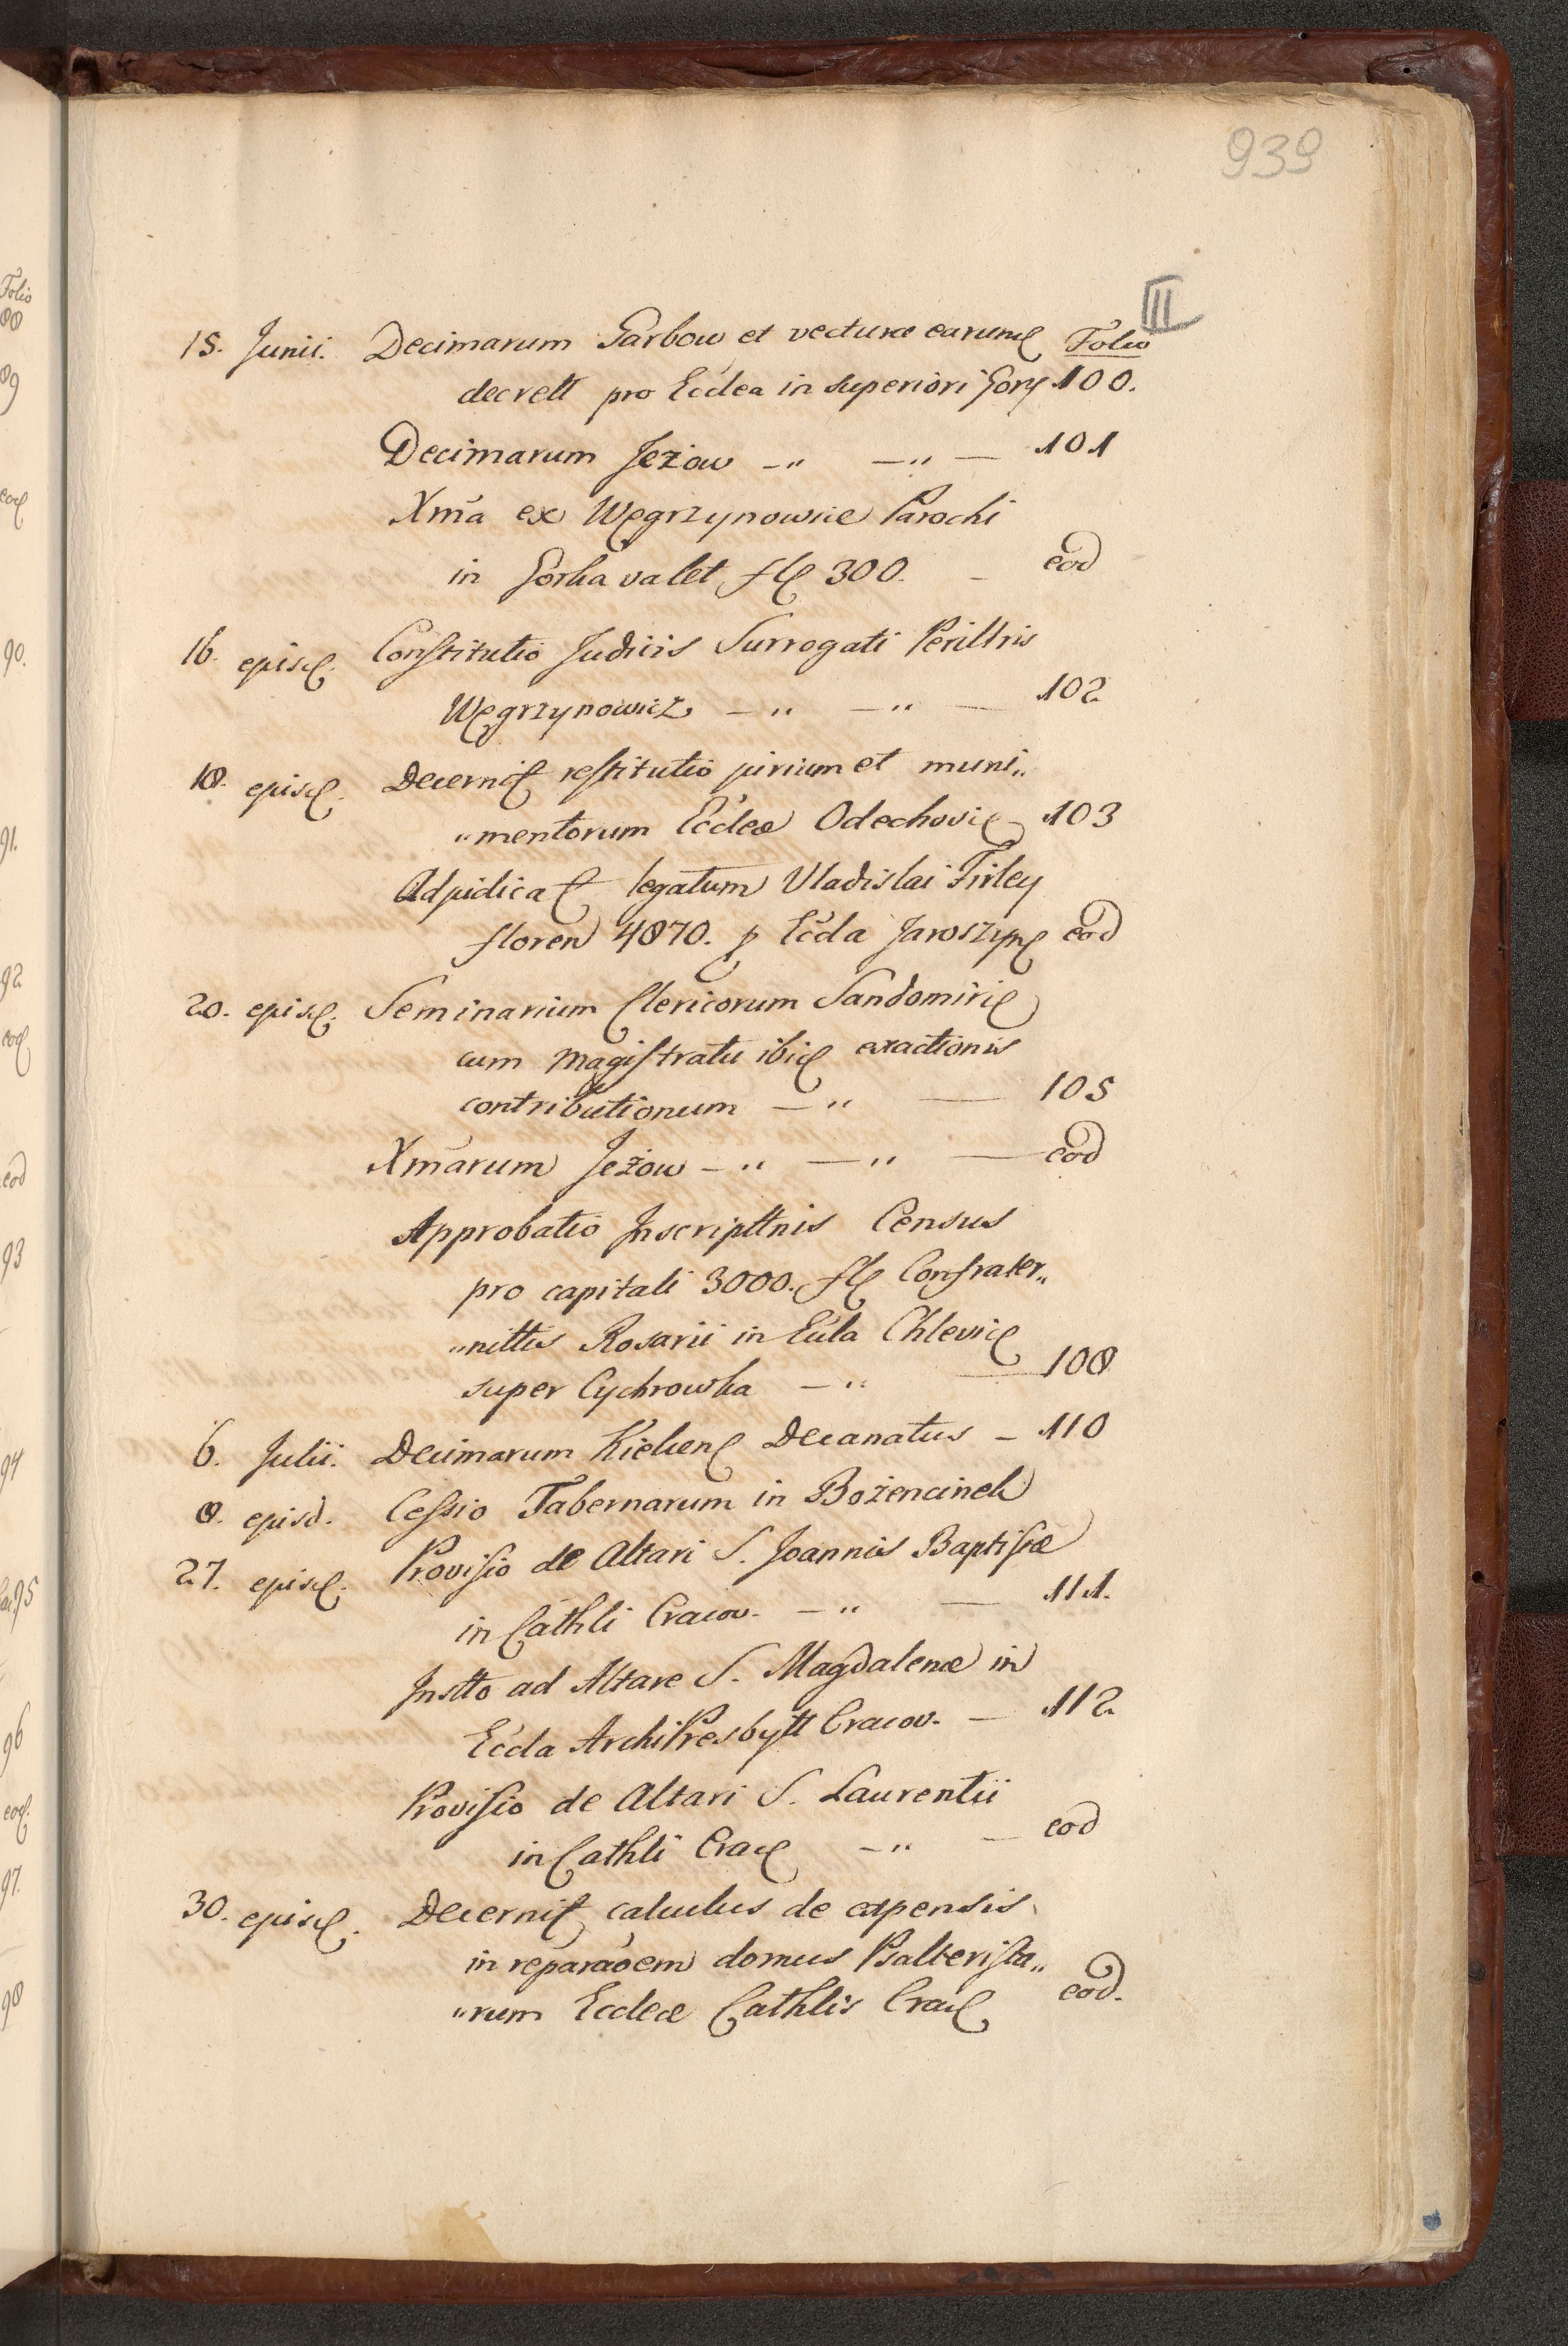 939
III
15. Junii. Decimarum Garbow et vecturæ earumd Folio
decrett pro Ecclea in superiori Gory 100.
Decimarum Jeżow -,, -,, - 101
Xma ex Węgrzynowice Parochi
in Gorka valet fl 300. - eod
16. ejusd. Constitutio Judicis Surrogati Perillris
Węgrzynowicz -,, -,, - 102
18. ejusd. Decernit restitutio jurium et muni,,
,,mentorum Eccleæ Odechovie 103
Adjudicat legatum Vladislai Firley
floren 4870. p Eccla Jaroszyn eod
20. ejusd. Seminarium Clericorum Sandomiri
cum Magistratu ibid exactionis
contributionum -,, - 105
Xmarum Jeżow -,, -,, - eod
Approbatio Inscripttnis Census
pro capitali 3000. fl Confrater,,
,,nittis Rosarii in Eccla Chlevic
super Cychrowka -,, - 108
6. Julii. Decimarum Kielcen Decanatus - 110
8. ejusd. Cessio Tabernarum in Bożencinek
27. ejusd. Provisio de Altari S. Joannis Baptistæ
in Cathli Cracov. -,, - 111.
Instto ad Altare S. Magdalenæ in
Eccla ArchiPresbytt Cracov. - 112
Provisio de Altari S. Laurentii
in Cathli Crac -,, - eod
30. ejusd. Decernit calculus de expensis
in reparaoem domus Psalterista,,
,,rum Eccleæ Cathlis Crac eod.
Folio
88
89
eod
90.
91.
92
eod
eod
93
94
95
96
eod.
97.
98